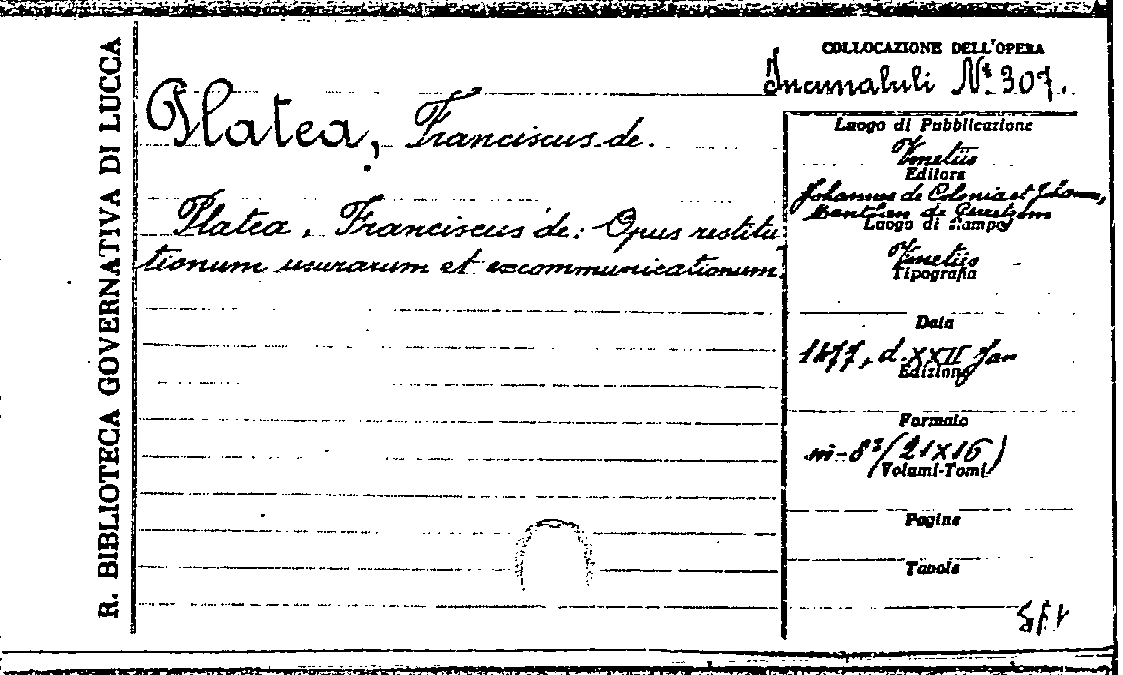 R. BIBLIOTECA GOVERNATIVA DI LUCCA
COLLOCAZIONE DELL'OPERA
Incunabuli Nº 307.
Platea, Franciscus de.
Platea, Franciscus de: Opus restitu
tionum usurarum et excommunicationum.
Luogo di Pubblicazione
Venetiis
Editore
Johannes de Colonia et Johann,
Manthen de
Luogo di Stampa
Venetiis
Tipografia
Data
1477, d. XXII Jan
Edizione
Formato
in-8º (21x16)
Volumi-Tomi
Pagine
Tavole